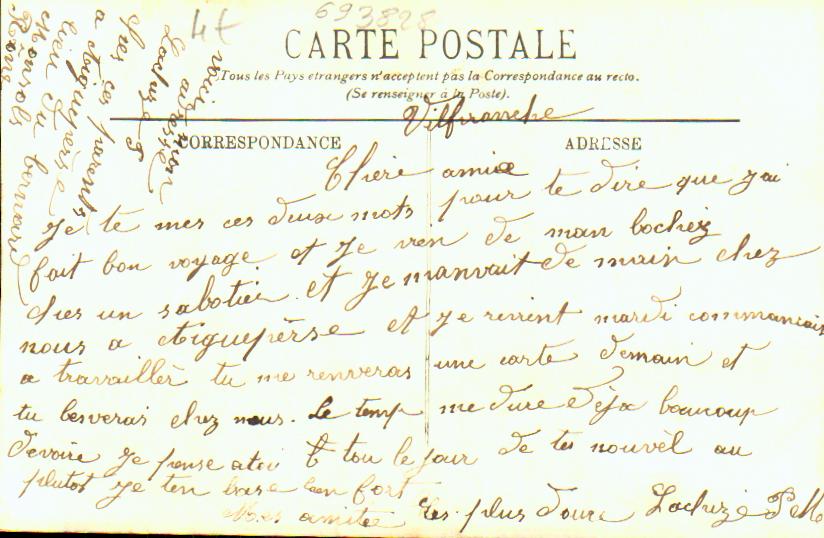 693828
4€
CARTE POSTALE
Tous les Pays etrangers n'acceptent pas la Correspondance au recto.
(Se renseigner à la Poste).
Vilfranche
CORRESPONDANCE
ADRESSE
Chère amie
Je te mes ces deux mots pour te dire que j'ai
fait bon voyage et je vien de man bochéz
ches un sabotiér et je manvait de main chez
nous a Aiguepèrse et je revient mardi commancais
a travaillèr tu me renveras une carte demain et
tu lenverais chez nous. Le temp me dure Dèja baucoup
devoire je pense a toi tou le jour de tes nouvèl au
plutot je ten brase bien fort
Mes amitée les plus douce Lachize P M
voici mon
adresse
Lachize
ches ces parents
a Aigueperse
lieu du bernard
Monsols
Rône